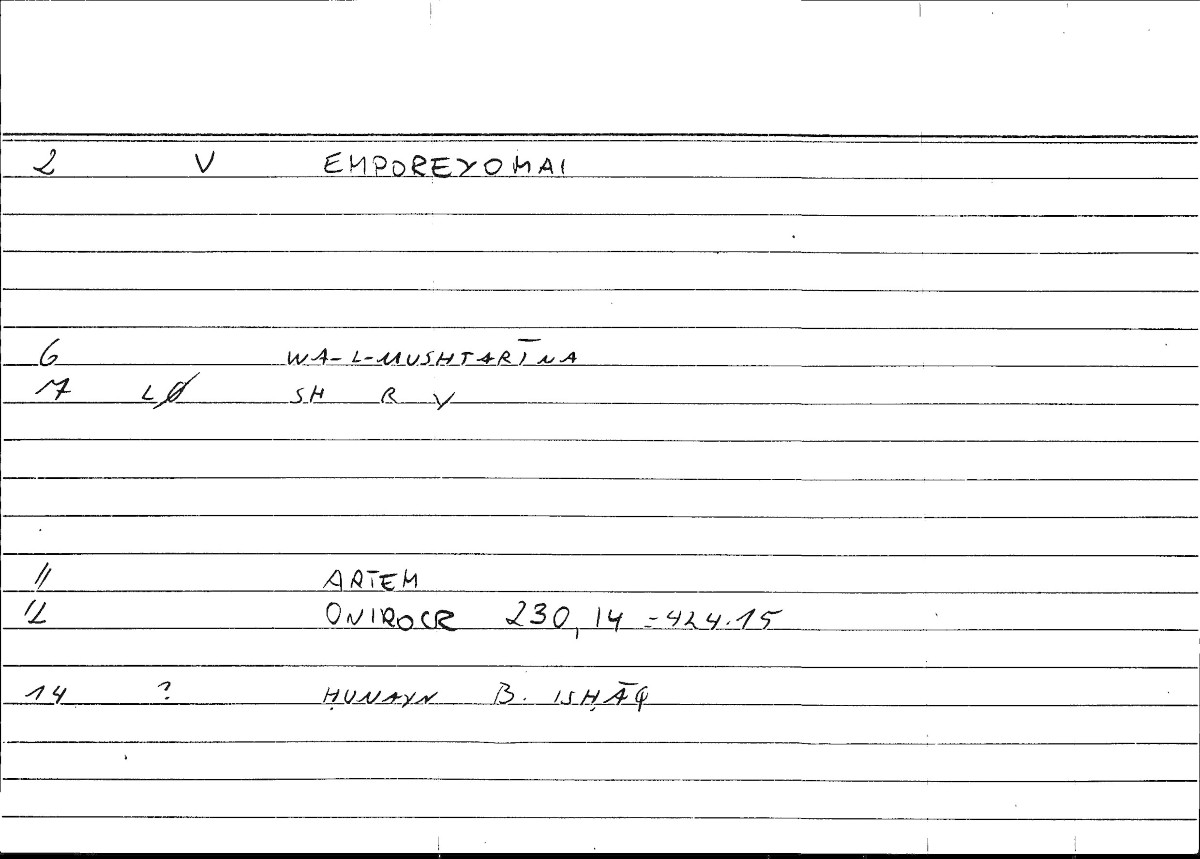 2 V EMPOREYOMAI
6 WA-L-MUSHTARĪNA
7 LØ SH R Y
11 ARTEM
12 ONIROCR 230,14 =424.15
14 ? ḤUNAYN B. ISḤĀQ